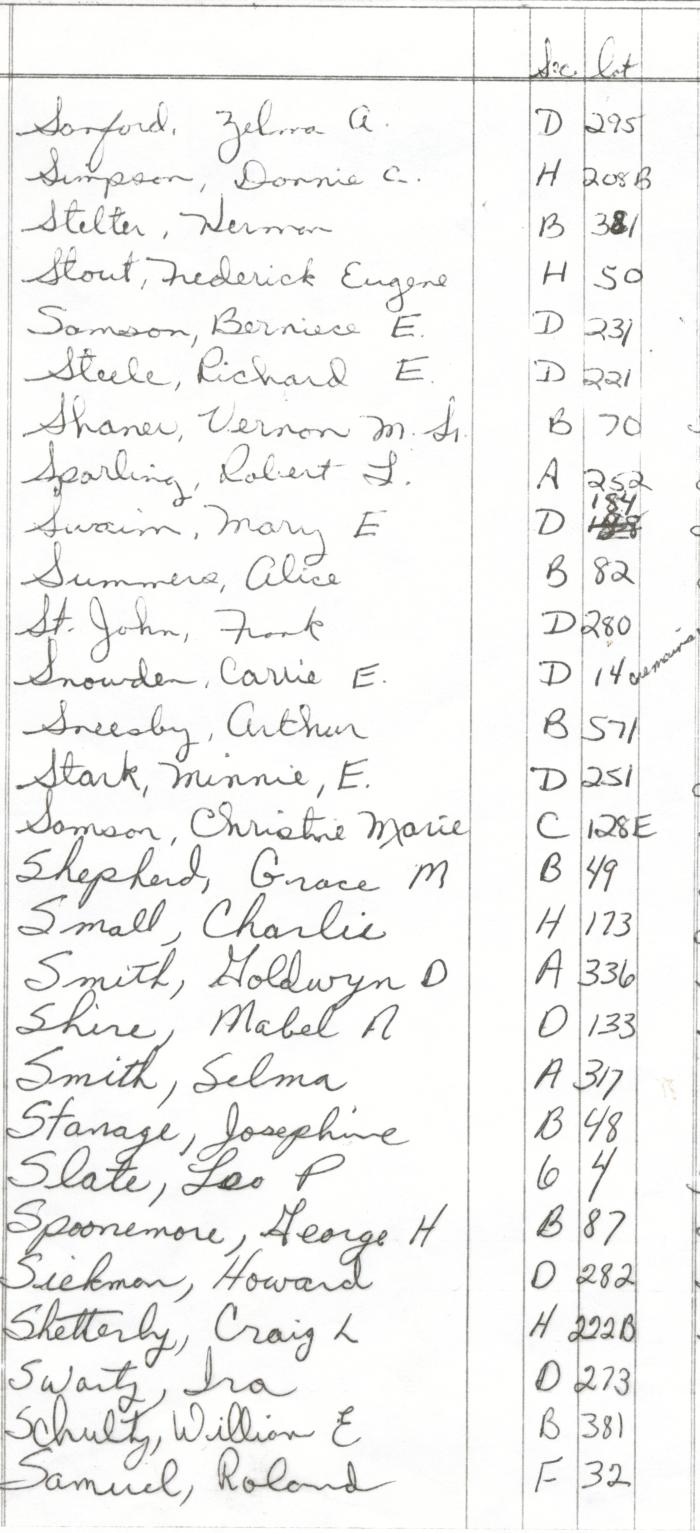 Sec lot
Sanford, Zelma A. D 295
Simpson, Donnie C. H 208B
Stelter, Herman B 381
Stout, Frederick Eugene H 50
Samson, Berniece E. D 231
Steele, Richard E. D 221
Shaner, Vernon M. Sr. B 70
Sparling, Robert L. A 252
184
Swaim, Mary E D
Summers, Alice B 82
St. John, Frank D 280
Snowden, Carrie E. D 14 cremains
Sneesby, Arthur B 571
Stark, Minnie, E. D 251
Samson, Christine Marie C 128E
Shepherd, Grace M B 49
Small, Charlie H 173
Smith, Goldwyn D A 336
Shire, Mabel A D 133
Smith, Selma A 317
Stanage, Josephine B 48
Slate, Leo P 6 4
Spoonemore, George H B 87
Siekman, Howard D 282
Shetterly, Craig L H 222B
Swartz, Ira D 273
Schultz, William E B 381
Samuel, Roland F 32